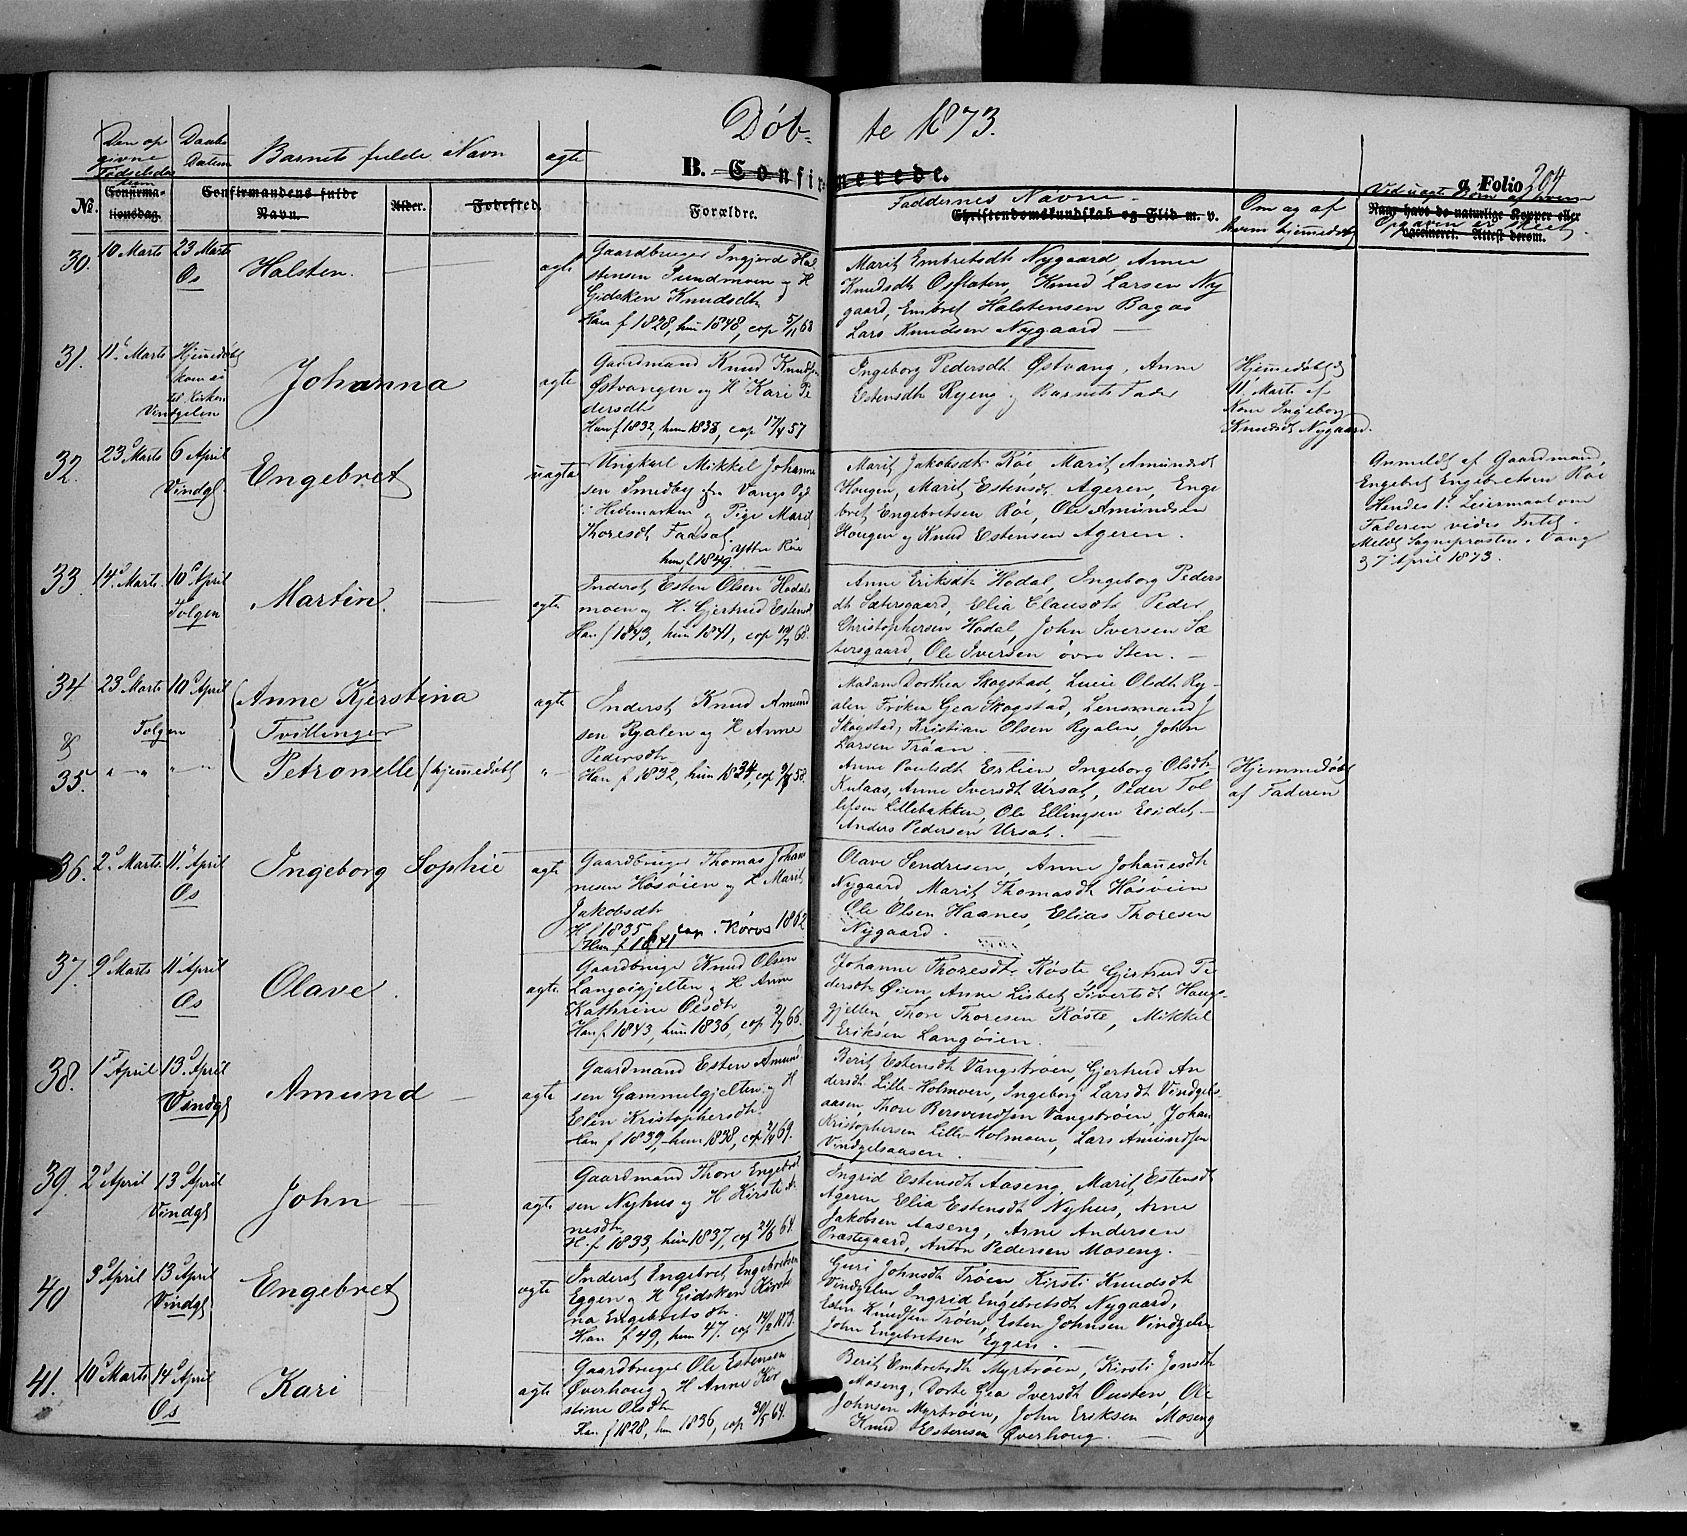 Døb- te 1873.
Den op
givne
Fødselsdag
Daabs
Datum
Barnets fulde Navn
ægte
B. Confirmerede.
a Folio 204
No.
Confirma-
tionsdag.
Confirmandens fulde
Navn.
Alder.
Fødested.
Forældre.
Faddernes Navne.
Christendomskundskab og Flid m. v.
Om og af
hvem hjemmedøbt
Ved uægte Børn af hvem
Naar havt de naturlige Kopper eller
Opgaven er skeet.
vaccineret. Attest derom.
30. 10 Marts 23 Marts
Os
Halsten.
ægte
Gaardbruger Ingjerd Hal
stensen Sundmoen og H
Gidsken Knudsdtr
Han f 1828, hun 1848, cop 5/11 68
Marit Embretsdt Nygaard, Anne
Knudsdt Osflaten, Knud Larsen Ny
gaard, Embret Halstensen Bagaas
Lars Knudsen Nygaard
31. 11 Marts Hjemmedøbt
kom ei
til Kirken
Vindgelen
Johanna
ægte
Gaardmand Knud Knudsen
Østvangen og H Kari Pe
dersdtr
Han f 1832, hun 1838, cop 17/4 57
Ingeborg Pedersdt Østvang, Anne
Estensdt Ryeng og Barnets Fader
Hjemmedøbt
11 Marts af
Kone Ingeborg
Knudsdt Nygaard.
32. 23 Marts 6 April
Vindgl.
Engebret
uægte
Ungkarl Mikkel Johanne
sen Smedby fra Vangs Pgd
i Hedemarken og Pige Marit
Thoresdt Faasat, ytter Røe
hun f 1849
Marit Jakobsdt Røe, Marit Amundsdt
Hougen, Marit Estensdt Ageren, Enge
bret Engebretsen Røe, Ole Amundsen
Hougen og Knud Estensen Ageren.
Anmeldt af Gaardmand,
Engebret Engebretsen Røe
Hendes 1ste Leiermaal om
Faderen vides Intet.
Meldt Sogneprosten i Vang
37 April 1873.
33. 14 Marts 10 April
Tolgen
Martin.
ægte
Inderst Esten Olsen Hodals
moen og H. Gjertrud Estensdt
Han f 1843, hun 1841, cop 68
Anne Eriksdt Hodal, Ingeborg Peders
dt Sætersgaard, Elia Clausdt, Peder
Christophersen Hodal, John Iversen Sæ
tersgaard, Ole Iversen øvre Sten.
34. 23 Marts 10 April
Tolgen
Anne Kjerstina
Tvillinger
ægte
Inderst Knud Amund
sen Ryalen og H Anne
Pedersdtr
Han f 1832, hun 1834, cop 58.
Madam Dorthea Skogstad, Lucie Olsdt Ry-
alen Frøken Gea Skogstad, Lensmand J
Skogstad, Kristian Olsen Ryalen, John
Larsen Trøan.
&
35. " " " "
Petronelle (hjemmedøbt
"
Anne Poulsdt Erlien, Ingeborg Olsdt
Kulaas, Anne Iversdt Ursat, Peder Tol
lefsen Lillebakken, Ole Ellingsen
Anders Pedersen Ursat.
Hjemmedøbt
af Faderen
36. 2 Marts 11 April
Os
Ingeborg Sophie
ægte
Gaardbruger Thomas Johan
nesen Høsøien og H Marit
Jakobsdtr
H f 1835 cop. Røros 1862
Hun f 1841
Olave Sendresen, Anne Johannesdt
Nygaard Marit Thomasdt Høsøien
Ole Olsen Haanes, Elias Thoresen
Nygaard.
37. 9 Marts 11 April
Os
Olave.
ægte
Gaardbruger Knud Olsen
Langøigjelten og H Anne
Kathrine Olsdtr
Han f 1843, hun 1836, cop 66.
Johanne Thoresdt Røste Gjertrud Pe
dersdt Øien, Anne Lisbet Sivertsdt Hougs-
gjelten Thore Thoresen Røste, Mikkel
Eriksen Langøien.
38. 1 April 13 April
Vindgl
Amund
ægte
Gaardmand Esten Amund
sen Gammelgjelten og H
Elen Kristophersdtr
Han f 1839, hun 1838, cop 69.
Berit Estensdt Vangstrøen, Gjertrud An
dersdt Lille-Holmoen, Ingeborg Larsdt Vindgels-
aasen, Thore Bersvendsen Vangstrøen, Johan
Kristophersen Lille-Holmoen, Lars Amundsen
Vindgelsaasen.
39. 2 April 13 April
Vindgl
John
ægte
Gaardmand Thore Engebret
sen Nyhus og H Kirsti Ar
nesdtr
H. f 1833, hun 1837, cop 24/6 64.
Ingrid Estensdt Aaseng, Marit Estensdt
Ageren, Elia Estensdt Nyhus, Arne
Jakobsen Aaseng, Arne Andersen
Præstegaard, Anton Pedersen Moseng.
40 3 April 13 April
Vindgl
Engebret
ægte
Inderst Engebret Engebretsen
Eggen og H Gidsken Kirsti
na Engebretsdtr.
Han f 49, hun 47. cop 14/2 1873.
Guri Johnsdt Trøen Kirsti Knudsdt
Vindgelen Ingrid Engebretsdt Nygaard,
Esten Knudsen Trøen, Esten Johnsen Vindgelen
John Engebretsen Eggen.
41. 10 Marts 14 April
Os
Kari
ægte
Gaardbruger Ole Estensen
Øverhoug og H Anne Kir
stine Olsdtr
Han f 1828, hun 1836, cop 30/5 64.
Berit Embretsdt Myrtrøen, Kirsti Jonsdt
Moseng, Dorte Gea Iversdt Ousten, Ole
Johnsen Myrtrøen, John Eriksen Moseng
Knud Estensen Øverhoug.